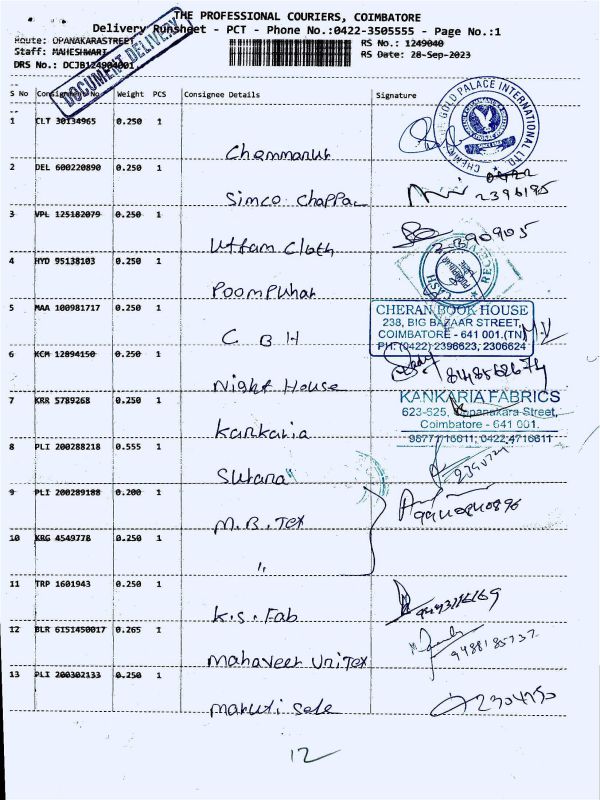 THE PROFESSIONAL COURIERS, COIMBATORE
Delivery Runsheet - PCT - Phone No.:0422-3505555 - Page No.:1
Route: OPANAKARASTREET
RS No.: 1249040
Staff: MAHESHWARI
RS Date: 28-Sep-2023
DRS No.: DCJB124904001
DOCUMENT DELIVERY
S No Consignment No Weight PCS Consignee Details Signature
1 CLT 30134965 0.250 1
Chemmanur
CHEMMANUR GOLD PALACE INTERNATIONAL LTD.
2 DEL 600220890 0.250 1
Simco Chappal
0422
2396195
3 VPL 125182079 0.250 1
Uttam Cloth
4 HYD 95138103 0.250 1
Poompuhar
5 MAA 100981717 0.250 1
C B H
CHERAN BOOK HOUSE
238, BIG BAZAAR STREET,
COIMBATORE - 641 001.(TN)
PH: (0422) 2396623, 2306624
6 KCM 12894150 0.250 1
Night House
7 KRR 5789268 0.250 1
Kankaria
KANKARIA FABRICS
623-625, Oppanakara Street,
Coimbatore - 641 001.
98777716611, 0422-4716611
8 PLI 200288218 0.555 1
Sutara
9 PLI 200289188 0.200 1
M.B. Tex
10 KRG 4549778 0.250 1
"
11 TRP 1601943 0.250 1
K.S. Fab
12 BLR 6151450017 0.265 1
Mahaveer Unitex
9488185737
13 PLI 200302133 0.250 1
Maruti Sale
12